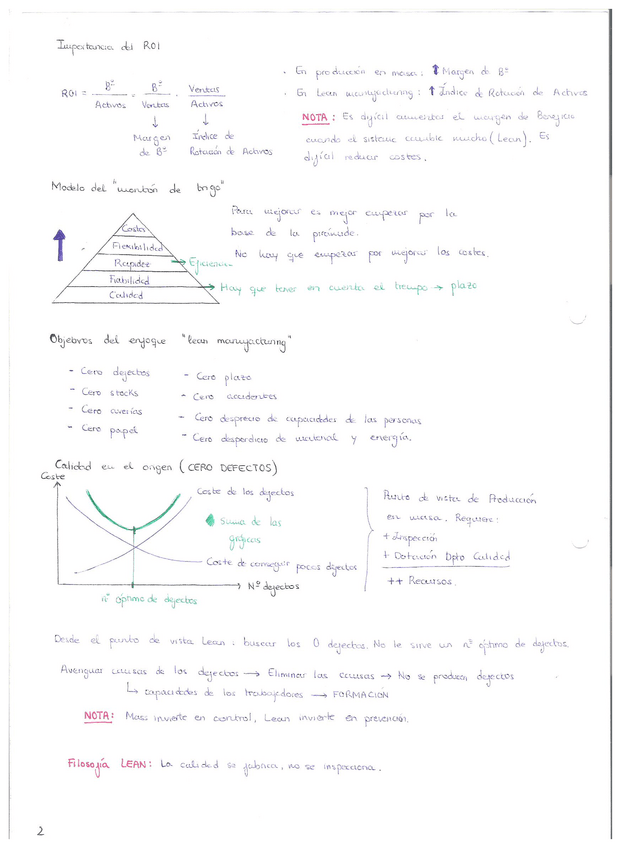 Importancia del ROI
ROI = Bº/Activos = Bº/Ventas · Ventas/Activos
Margen de Bº
Índice de Rotación de Activos
· En producción en masa: ↑ Margen de Bº
· En Lean manufacturing: ↑ Índice de Rotación de Activos
NOTA: Es difícil aumentar el margen de Beneficio
cuando el sistema cambie mucho (Lean). Es
difícil reducir costes.
Modelo del "montón de trigo"
Costes
Flexibilidad
Rapidez
Fiabilidad
Calidad
Para mejorar es mejor empezar por la
base de la pirámide.
No hay que empezar por mejorar los costes.
→ Hay que tener en cuenta el tiempo → plazo
Objetivos del enfoque "lean manufacturing"
- Cero defectos
- Cero stocks
- Cero averías
- Cero papel
- Cero plazo
- Cero accidentes
- Cero desprecio de capacidades de las personas
- Cero desperdicio de material y energía.
Calidad en el origen (CERO DEFECTOS)
Coste
Coste de los defectos
Suma de las
gráficas
Coste de conseguir pocos defectos
Nº defectos
nº óptimo de defectos
Punto de vista de Producción
en masa. Requiere:
+ Inspección
+ Dotación Dpto Calidad
++ Recursos.
Desde el punto de vista Lean: buscar los 0 defectos. No le sirve un nº óptimo de defectos.
Averiguar causas de los defectos → Eliminar las causas → No se producen defectos
↳ capacidades de los trabajadores → FORMACIÓN
NOTA: Mass invierte en control, Lean invierte en prevención.
Filosofía LEAN: La calidad se fabrica, no se inspecciona.
2